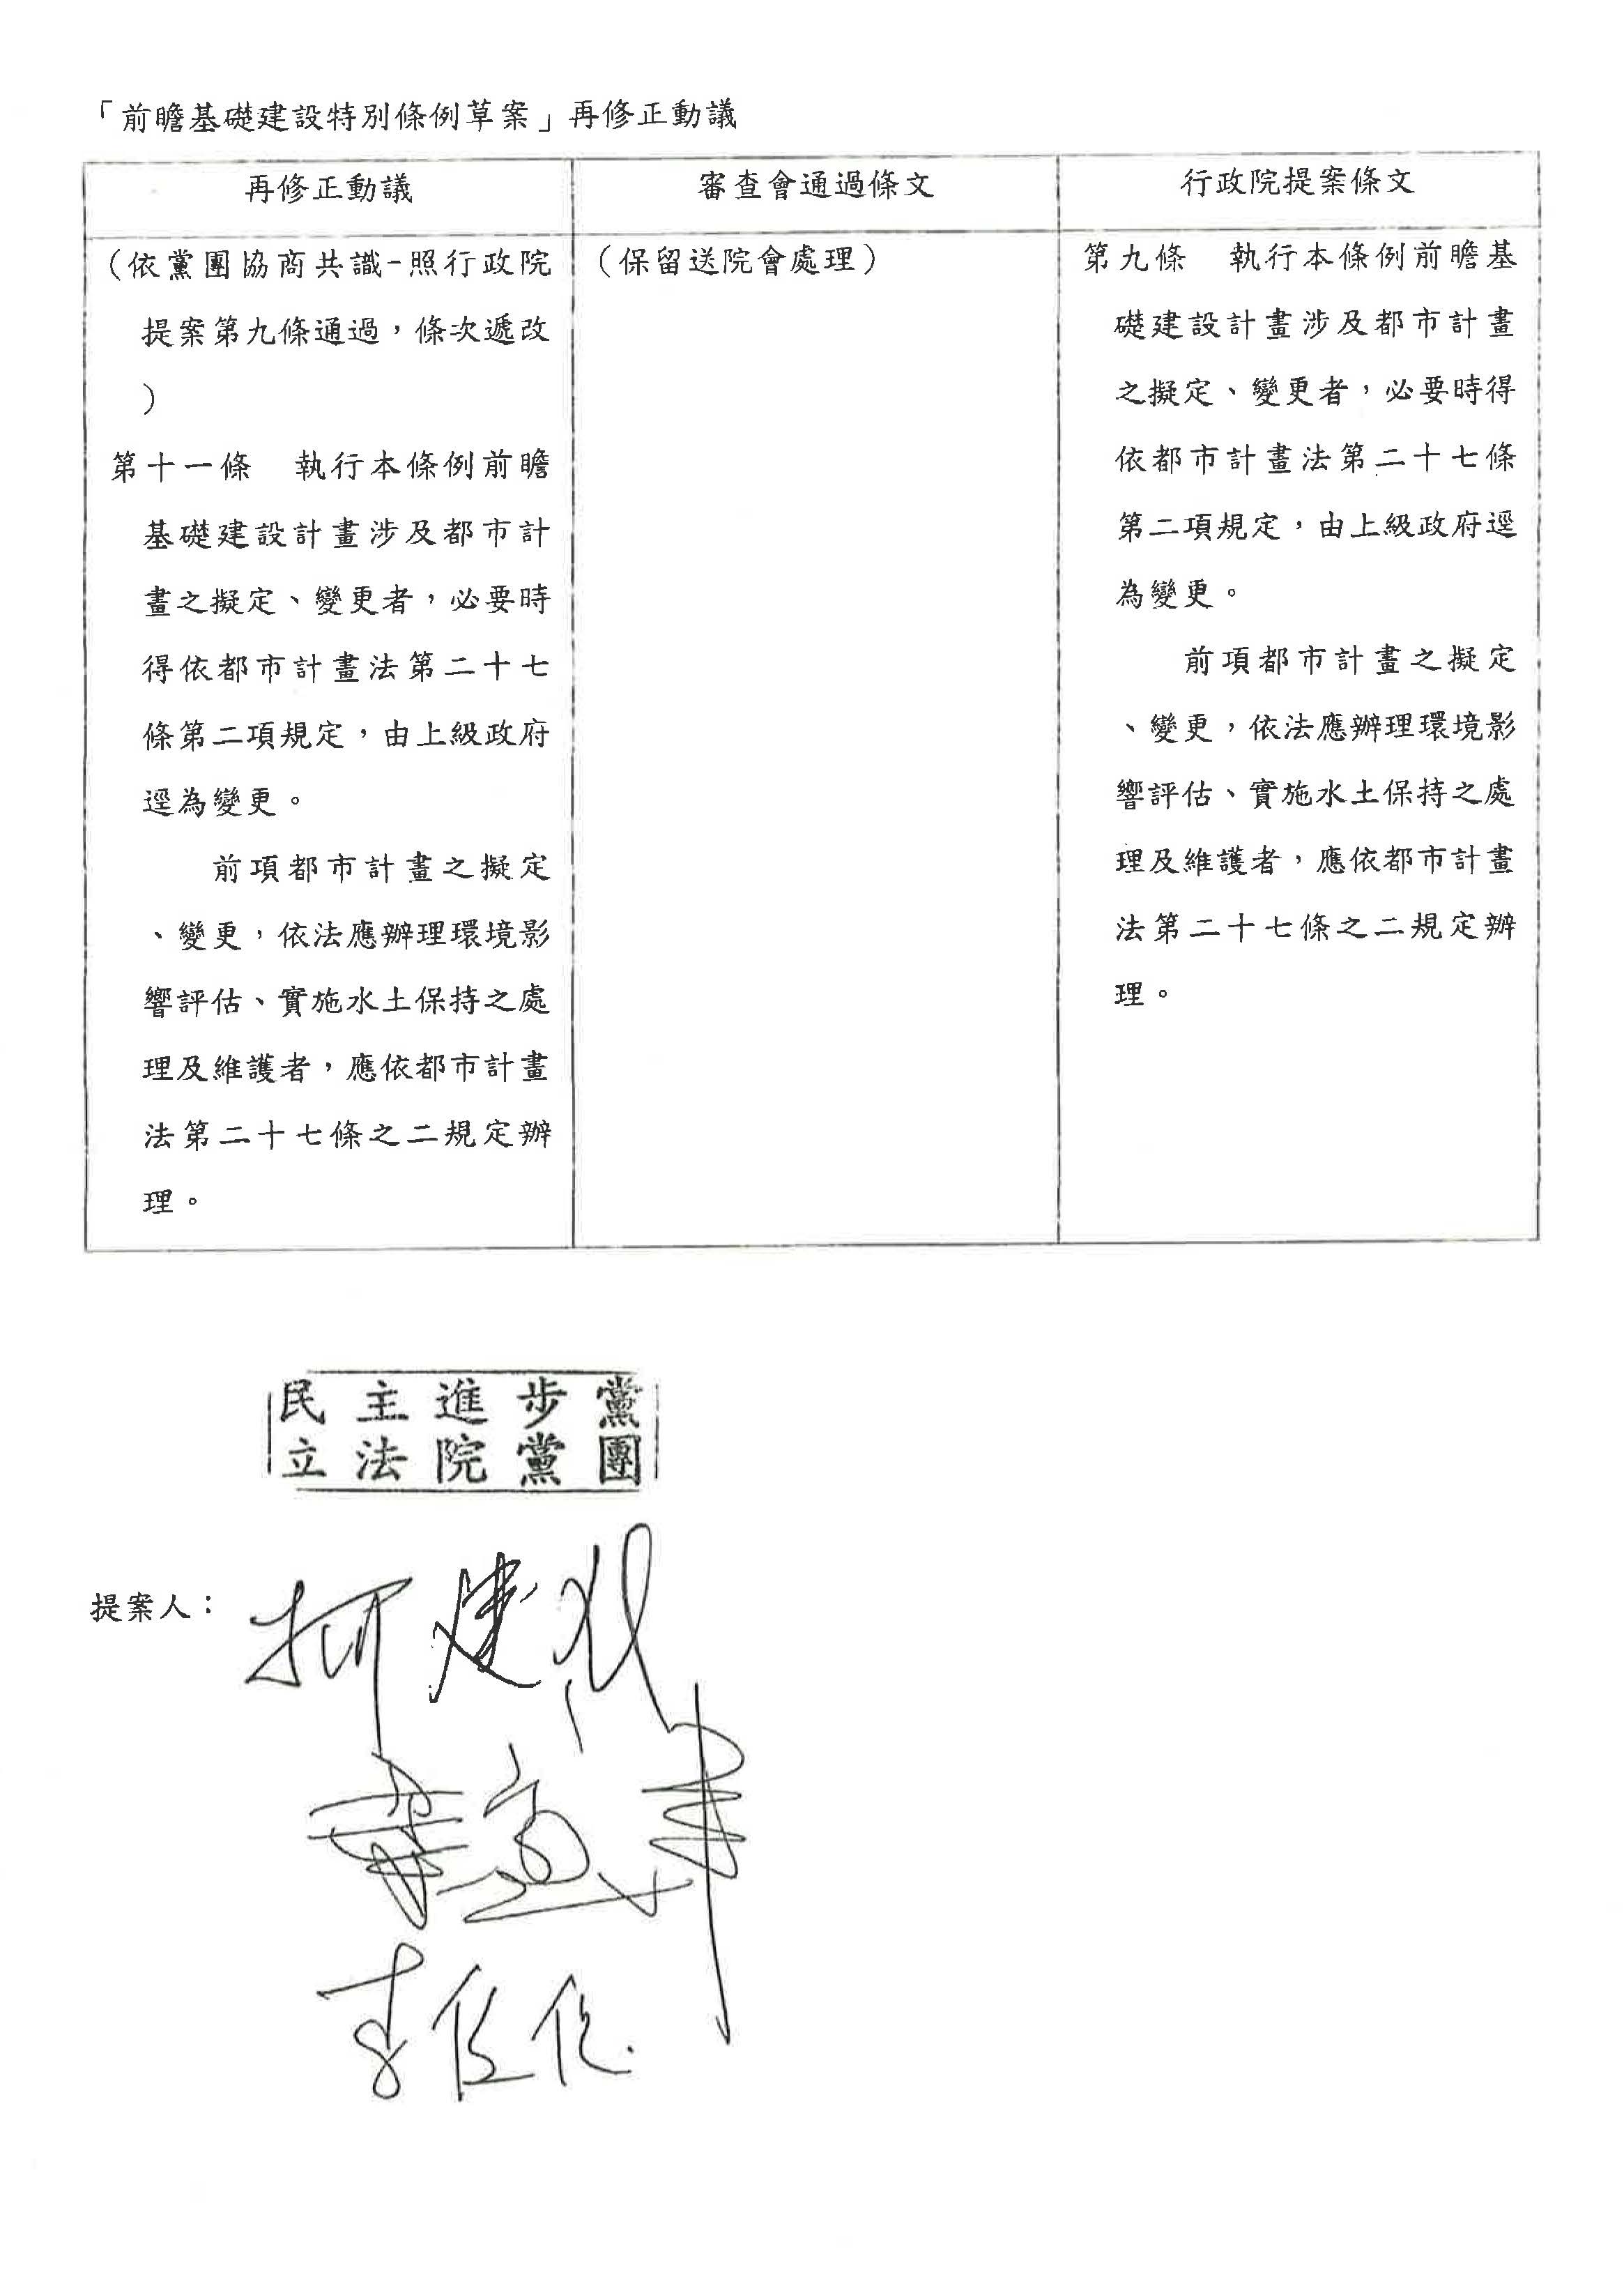 「前瞻基礎建設特別條例草案」再修正動議
再修正動議
審查會通過條文
行政院提案條文
(依黨團協商共識-照行政院
提案第九條通過，條次遞改
)
第十一條　執行本條例前瞻
基礎建設計畫涉及都市計
畫之擬定、變更者，必要時
得依都市計畫法第二十七
條第二項規定，由上級政府
逕為變更。
前項都市計畫之擬定
、變更，依法應辦理環境影
響評估、實施水土保持之處
理及維護者，應依都市計畫
法第二十七條之二規定辦
理。
(保留送院會處理)
第九條　執行本條例前瞻基
礎建設計畫涉及都市計畫
之擬定、變更者，必要時得
依都市計畫法第二十七條
第二項規定，由上級政府逕
為變更。
前項都市計畫之擬定
、變更，依法應辦理環境影
響評估、實施水土保持之處
理及維護者，應依都市計畫
法第二十七條之二規定辦
理。
民主進步黨
立法院黨團
提案人：
柯建銘
李俊俋